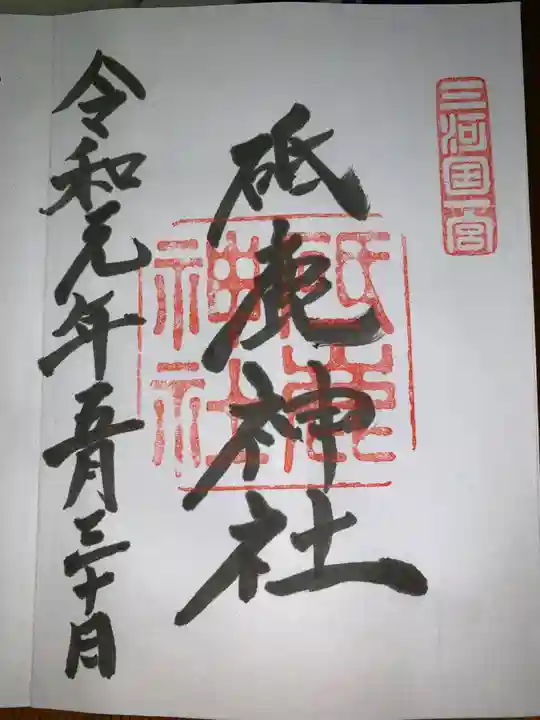 三河国一宮
砥鹿神社
砥鹿神社
令和元年五月三十日